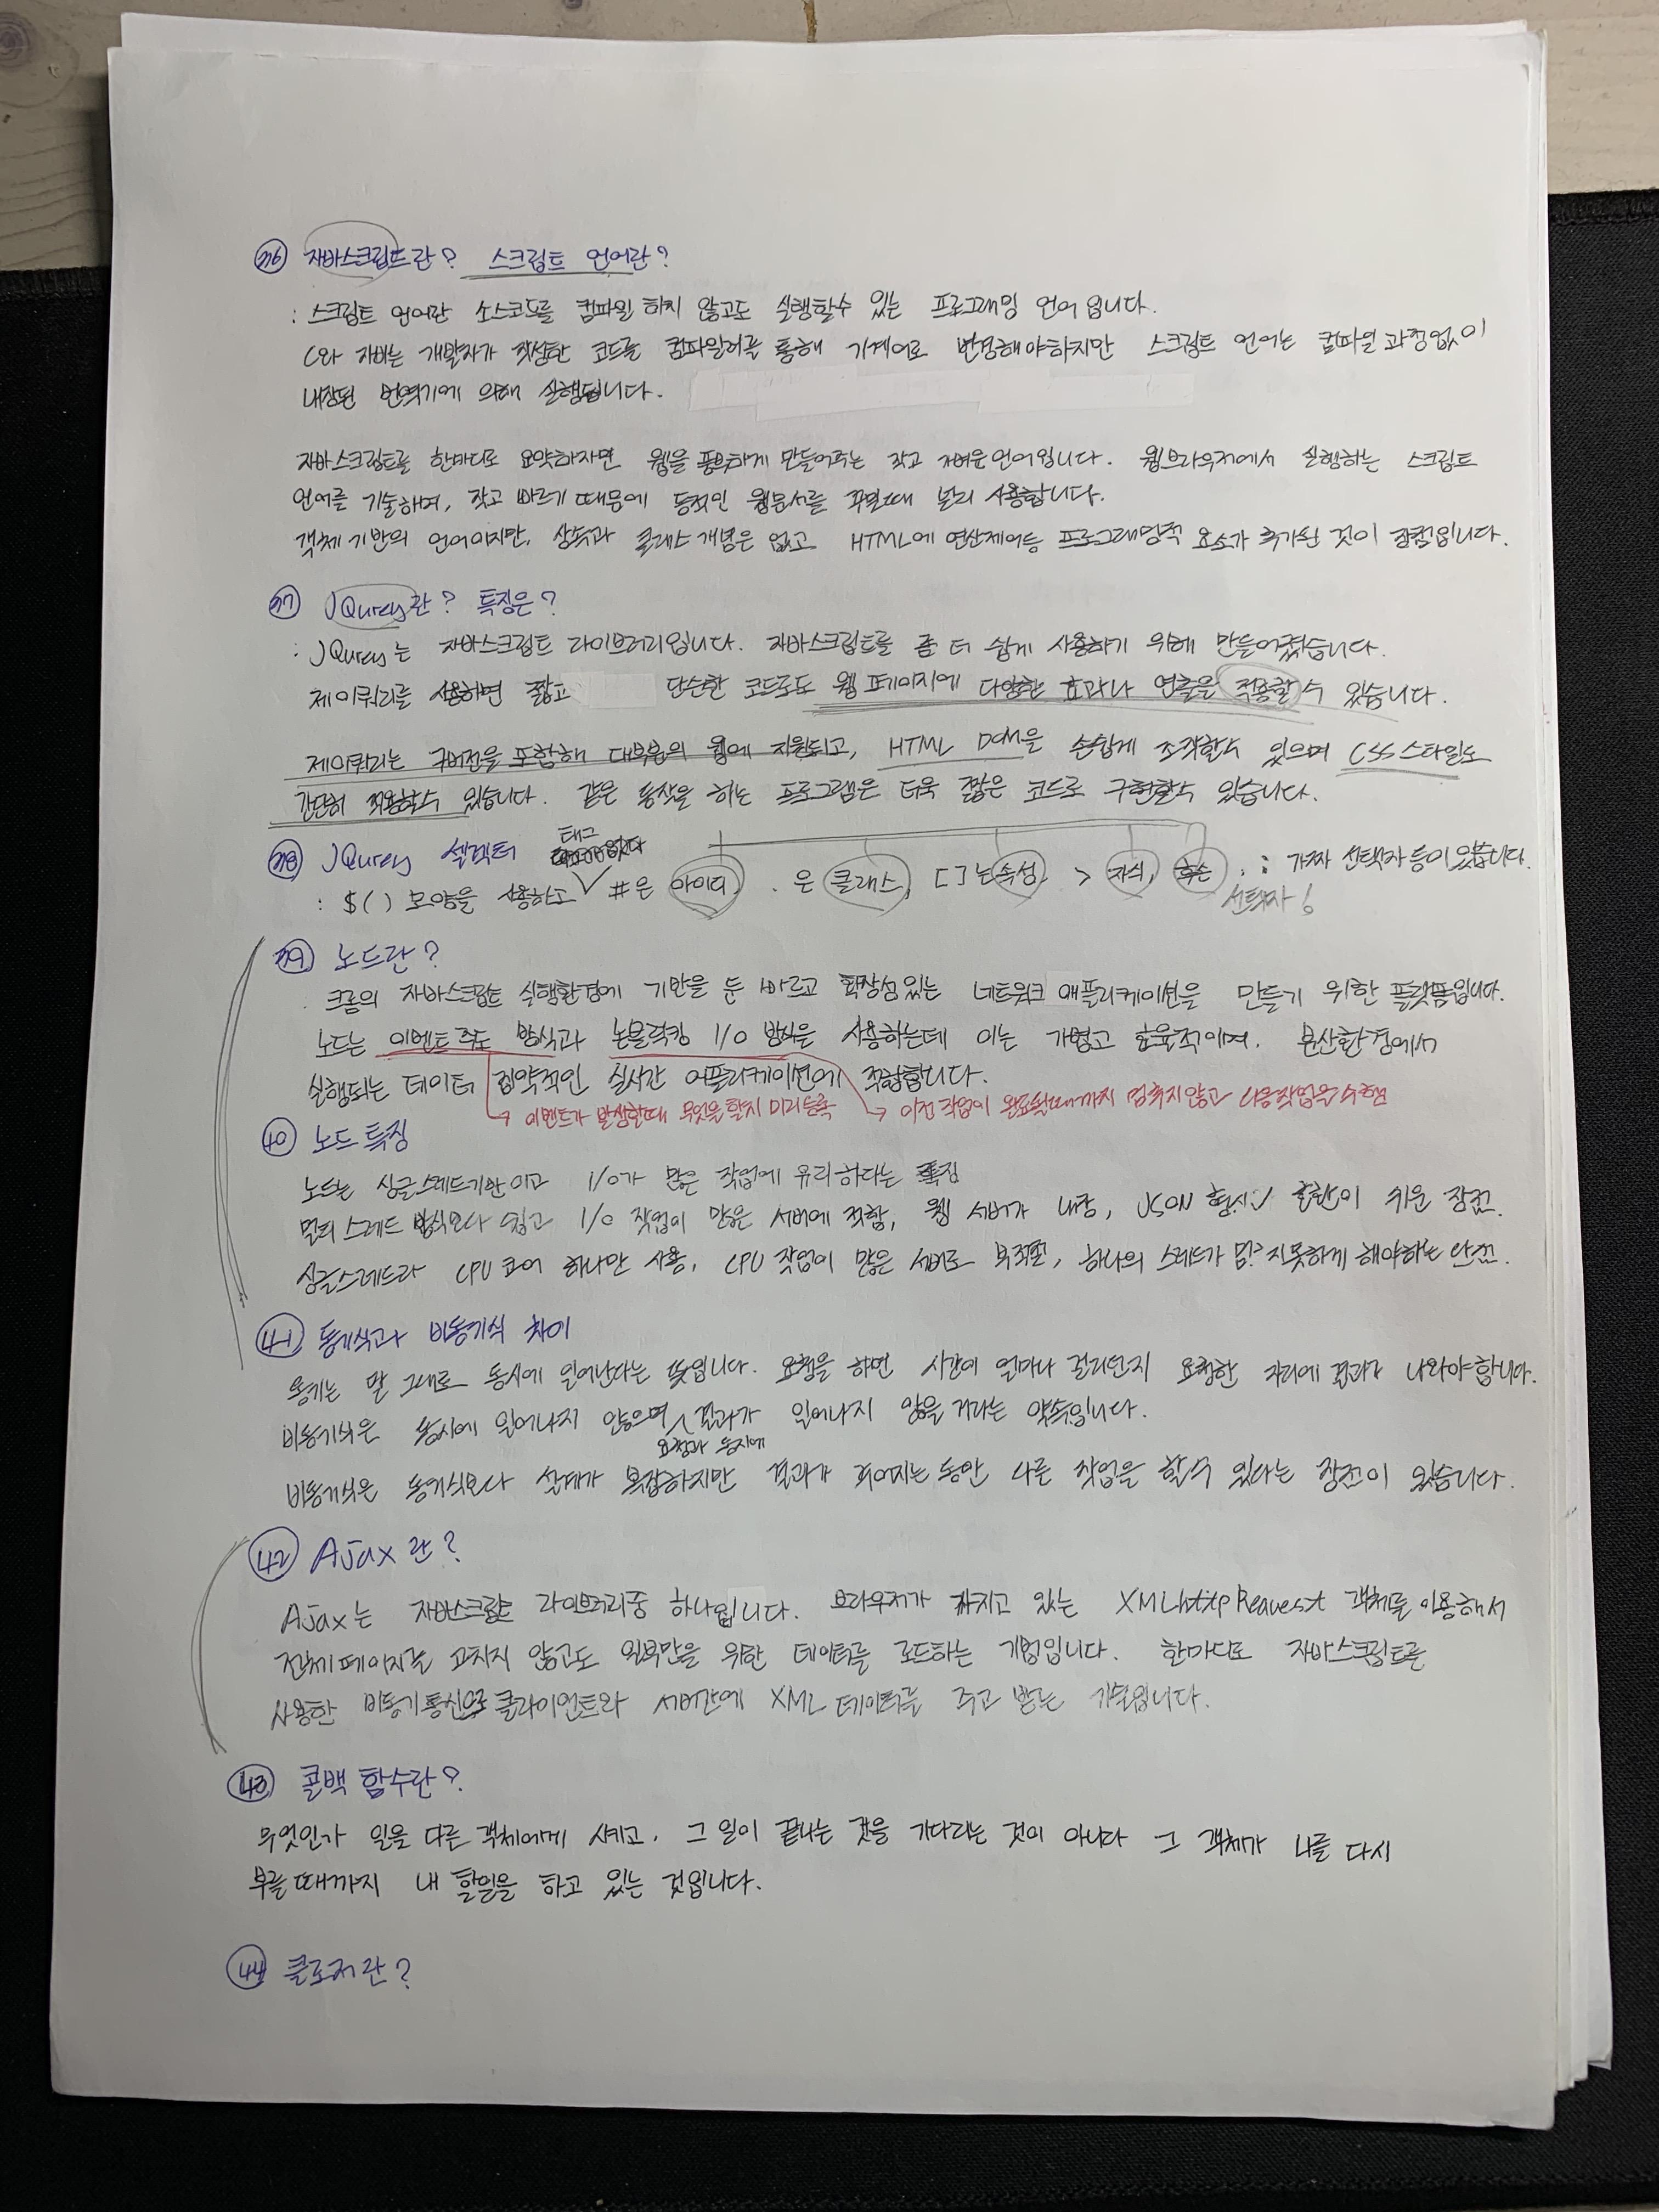 36 자바스크립트란? 스크립트 언어란?
: 스크립트 언어란 소스코드를 컴파일 하지 않고도 실행할수 있는 프로그래밍 언어 입니다.
C와 자바는 개발자가 작성한 코드를 컴파일러를 통해 기계어로 변경해야하지만 스크립트 언어는 컴파일 과정없이
내장된 번역기에 의해 실행됩니다.
자바스크립트를 한마디로 요약하자면 웹을 풍부하게 만들어주는 작고 가벼운언어입니다. 웹브라우저에서 실행하는 스크립트
언어를 기술하며, 작고 빠르기 때문에 동적인 웹문서를 꾸밀때 널리 사용합니다.
객체 기반의 언어이지만, 상속과 클래스 개념은 없고 HTML에 연산제어등 프로그래밍적 요소가 추가된 것이 장점입니다.
37 JQurey란? 특징은?
: JQurey는 자바스크립트 라이브러리입니다. 자바스크립트를 좀 더 쉽게 사용하기 위해 만들어졌습니다.
제이쿼리를 사용하면 짧고 단순한 코드로도 웹 페이지에 다양한 효과나 연출을 적용할 수 있습니다.
제이쿼리는 구버전을 포함해 대부분의 웹에 지원되고, HTML DOM을 손쉽게 조작할수 있으며 CSS 스타일도
간단히 적용할수 있습니다. 같은 동작을 하는 프로그램은 더욱 짧은 코드로 구현할수 있습니다.
38 JQurey 셀렉터 태그
: $( ) 모양을 사용하고 #은 아이디, . 은 클래스, [ ]는 속성, > 자식, 후손, : 가짜 선택자 등이 있습니다.
선택자!
39 노드란?
크롬의 자바스크립트 실행환경에 기반을 둔 빠르고 확장성있는 네트워크 애플리케이션을 만들기 위한 플랫폼입니다.
노드는 이벤트 주도 방식과 논블락킹 I/O 방식을 사용하는데 이는 가볍고 효율적이며. 분산환경에서
실행되는 데이터 집약적인 실시간 어플리케이션에 적합합니다.
→ 이벤트가 발생할때 무엇을 할지 미리등록 → 이전 작업이 완료될때까지 멈추지않고 다음작업을 수행
40 노드 특징
노드는 싱글스레드기반이고 I/O가 많은 작업에 유리하다는 특징
멀티 스레드 방식보다 쉽고 I/O 작업이 많은 서버에 적합, 웹 서버가 내장, JSON 형식 호환이 쉬운 장점.
싱글스레드라 CPU 코어 하나만 사용, CPU 작업이 많은 서버로 부적합, 하나의 스레드가 멈추지못하게 해야하는 단점.
41 동기식과 비동기식 차이
동기는 말 그대로 동시에 일어난다는 뜻입니다. 요청을 하면 시간이 얼마나 걸리던지 요청한 자리에 결과가 나와야합니다.
비동기식은 동시에 일어나지 않으며 요청과 동시에 결과가 일어나지 않을 거라는 약속입니다.
비동기식은 동기식보다 설계가 복잡하지만 결과가 주어지는 동안 다른 작업을 할수 있다는 장점이 있습니다.
42 AJax란?
AJax는 자바스크립트 라이브러리중 하나입니다. 브라우저가 가지고 있는 XMLhttpRequest 객체를 이용해서
전체 페이지를 고치지 않고도 일부만을 위한 데이터를 로드하는 기법입니다. 한마디로 자바스크립트를
사용한 비동기통신으로 클라이언트와 서버간에 XML 데이터를 주고 받는 기술입니다.
43 콜백 함수란?
무엇인가 일을 다른 객체에게 시키고, 그 일이 끝나는 것을 기다리는 것이 아니다 그 객체가 나를 다시
부를 때까지 내 할일을 하고 있는 것입니다.
44 클로저란?